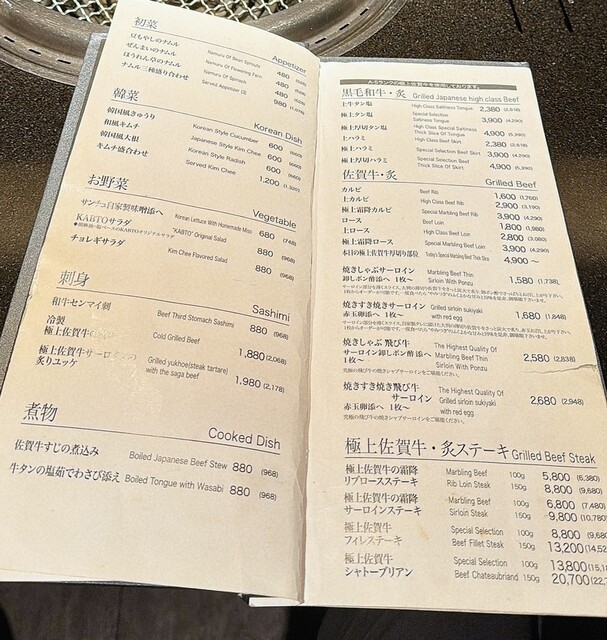 初菜 Appetizer
豆もやしのナムル Namuru Of Bean Sprouts 480
ぜんまいのナムル Namuru Of Flowering Fern 480
ほうれん草のナムル Namuru Of Spinach 480
ナムル三種盛り合わせ Served Appetizer (3) 980
韓菜 Korean Dish
韓国風きゅうり Korean Style Cucumber 600 (660)
和風キムチ Japanese Style Kim Chee 600 (660)
韓国風大根 Korean Style Radish 600 (660)
キムチ盛合わせ Served Kim Chee 1,200 (1,320)
お野菜 Vegetable
サンチュ自家製味噌添へ Korean Lettuce With Homemade Miso 680 (748)
KABTOサラダ "KABTO" Original Salad 880 (968)
チョレギサラダ Kim Chee Flavored Salad 880 (968)
刺身 Sashimi
和牛センマイ刺 Beef Third Stomach Sashimi 880 (968)
冷製
極上佐賀牛 Cold Grilled Beef 1,880 (2,068)
極上佐賀牛サーロイン
炙りユッケ Grilled yukhoe(steak tartare) with the saga beef 1,980 (2,178)
煮物 Cooked Dish
佐賀牛すじの煮込み Boiled Japanese Beef Stew 880 (968)
牛タンの塩茹でわさび添え Boiled Tongue with Wasabi 880 (968)
黒毛和牛・炙 Grilled Japanese high class Beef
上牛タン塩 High Class Saltiness Tongue 2,380 (2,618)
極上タン塩 Special Selection Saltiness Tongue 3,900 (4,290)
極上厚切タン塩 High Class Saltiness Thick Slice Of Tongue 4,900 (5,390)
上ハラミ High Class Beef Skirt 2,380 (2,618)
極上ハラミ Special Selection Beef Skirt 3,900 (4,290)
極上厚切ハラミ Special Selection Beef Thick Slice Of Skirt 4,900 (5,390)
佐賀牛・炙 Grilled Beef
カルビ Beef Rib 1,600 (1,760)
上カルビ High Class Beef Rib 2,900
極上霜降カルビ Special Marbling Beef Rib 3,900 (4,290)
ロース Beef Loin 1,800 (1,980)
上ロース High Class Beef Loin 2,800 (3,080)
極上霜降ロース Special Marbling Beef Loin 3,900 (4,290)
本日の極上佐賀牛厚切り部位 Today's Special Marbling Beef Thick Slice 4,900 〜
焼きしゃぶサーロイン
卸しポン酢添へ 1枚〜 Marbling Beef Thin Sirloin With Ponzu 1,580 (1,738)
焼きすき焼サーロイン
赤玉卵添へ 1枚〜 Grilled sirloin sukiyaki with red egg 1,680 (1,848)
焼きしゃぶ 飛び牛
サーロイン卸しポン酢添へ
1枚〜 The Highest Quality Of Marbling Beef Thin Sirloin With Ponzu 2,580 (2,838)
焼きすき焼き飛び牛
サーロイン
赤玉卵添へ 1枚〜 The Highest Quality Of Grilled sirloin sukiyaki with red egg 2,680 (2,948)
極上佐賀牛・炙ステーキ Grilled Beef Steak
極上佐賀牛の霜降 Marbling Beef 100g 5,800 (6,380)
リブロースステーキ Rib Loin Steak 150g 8,800 (9,680)
極上佐賀牛の霜降 Marbling Beef 100g 6,800 (7,480)
サーロインステーキ Sirloin Steak 150g 9,800 (10,780)
極上佐賀牛 Special Selection 100g 8,800 (9,680
フィレステーキ Beef Fillet Steak 150g 13,200 (14,52
極上佐賀牛 Special Selection 100g 13,800 (15,18
シャトーブリアン Beef Chateaubriand 150g 20,700 (22,7